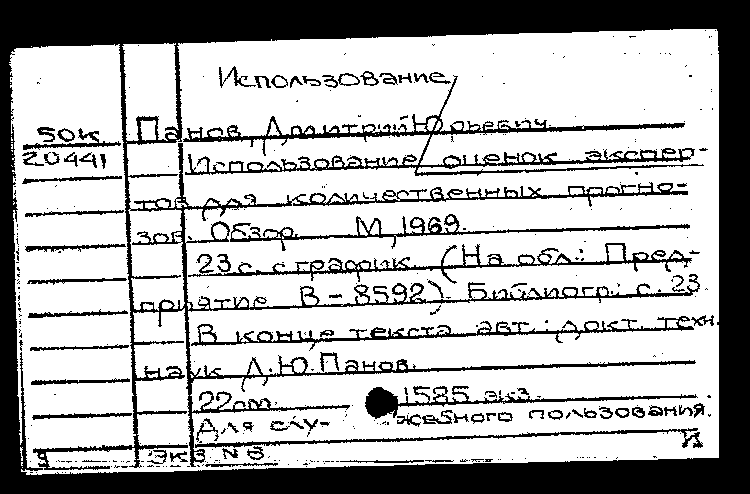 Использование
50К Панов, Дмитрий Юрьевич
20441 Использование оценок экспер-
тов для количественных прогно-
зов. Обзор. М., 1969.
23 с. с график. (На обл.: Пред-
приятие В-8592). Библиогр.: с. 23.
В конце текста авт.: докт. техн.
наук Д.Ю. Панов.
22 см. 1585 экз.
Для слу- жебного пользования.
Экз N 6 И